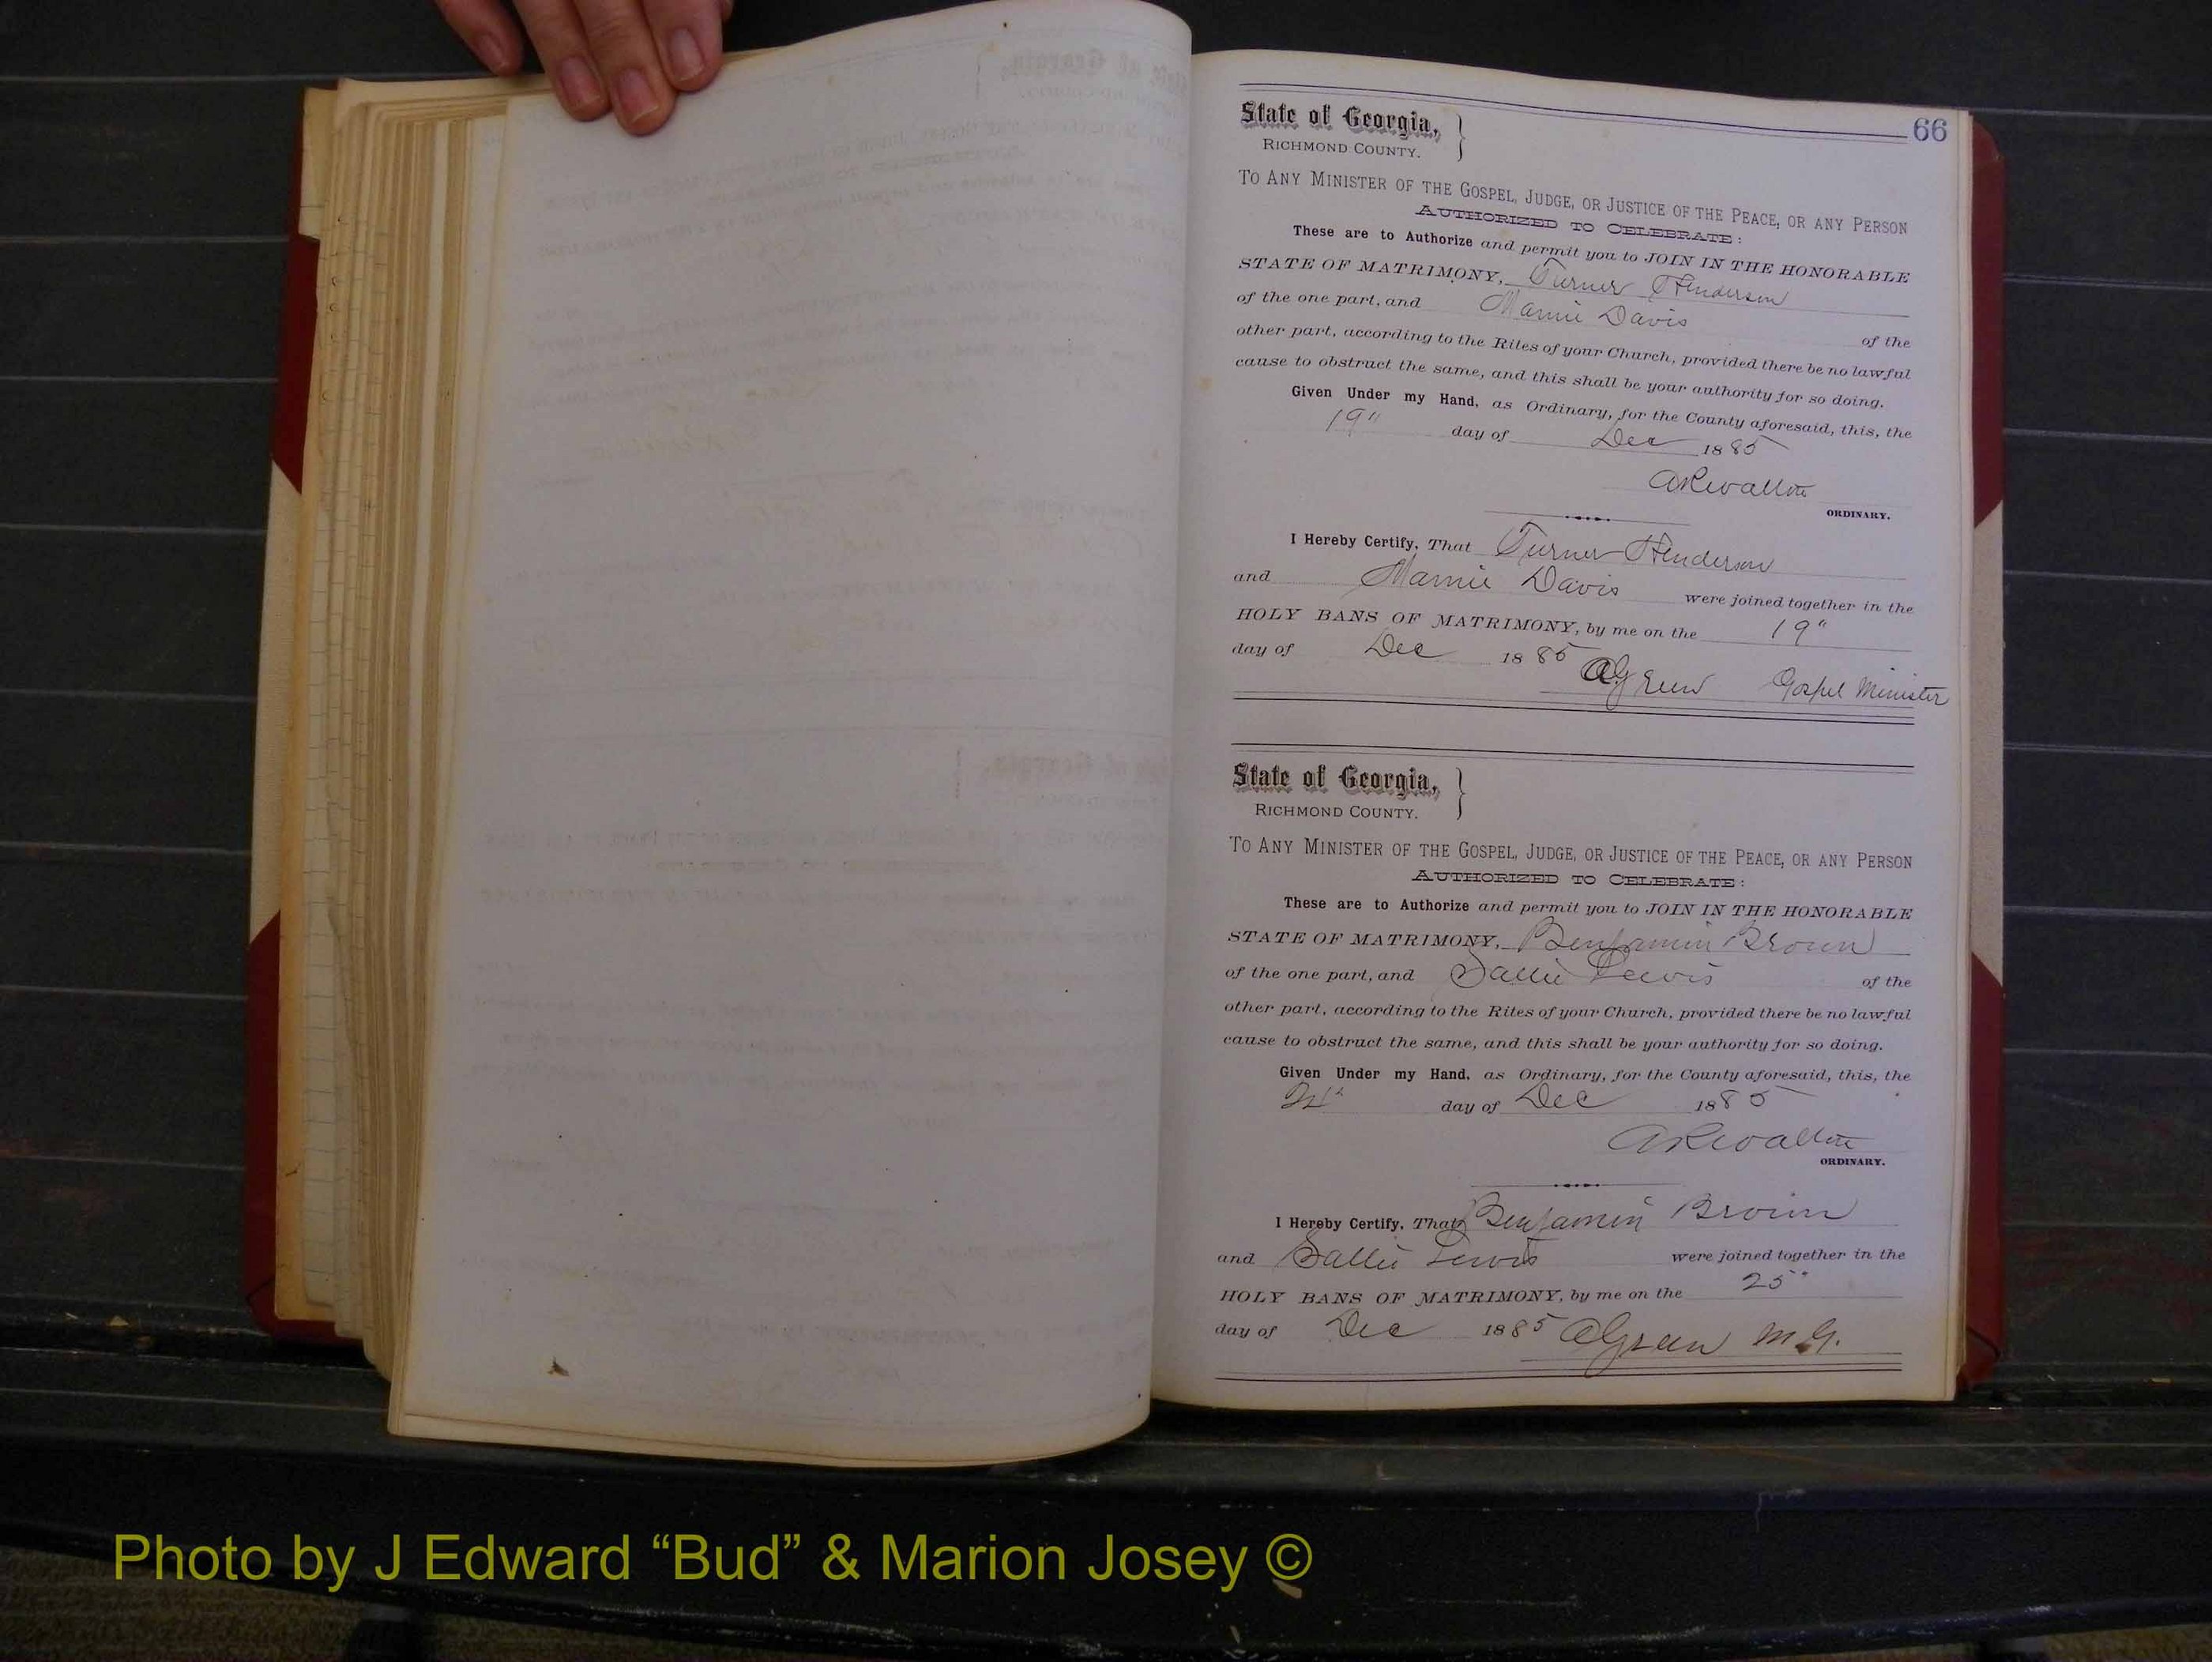 66
State of Georgia,
RICHMOND COUNTY.
TO ANY MINISTER OF THE GOSPEL, JUDGE, OR JUSTICE OF THE PEACE, OR ANY PERSON
AUTHORIZED TO CELEBRATE:
These are to Authorize and permit you to JOIN IN THE HONORABLE
STATE OF MATRIMONY, Turner Henderson
of the one part, and Mamie Davis of the
other part, according to the Rites of your Church, provided there be no lawful
cause to obstruct the same, and this shall be your authority for so doing.
Given Under my Hand, as Ordinary, for the County aforesaid, this, the
19" day of Dec 1885
A R Walton
ORDINARY.
I Hereby Certify, That Turner Henderson
and Mamie Davis were joined together in the
HOLY BANS OF MATRIMONY, by me on the 19"
day of Dec 1885 A Green Gospel Minister
State of Georgia,
RICHMOND COUNTY.
TO ANY MINISTER OF THE GOSPEL, JUDGE, OR JUSTICE OF THE PEACE, OR ANY PERSON
AUTHORIZED TO CELEBRATE:
These are to Authorize and permit you to JOIN IN THE HONORABLE
STATE OF MATRIMONY, Benjamin Brown
of the one part, and Sallie Lewis of the
other part, according to the Rites of your Church, provided there be no lawful
cause to obstruct the same, and this shall be your authority for so doing.
Given Under my Hand, as Ordinary, for the County aforesaid, this, the
day of Dec 1885
A R Walton
ORDINARY.
I Hereby Certify, That Benjamin Brown
and Sallie Lewis were joined together in the
HOLY BANS OF MATRIMONY, by me on the 25"
day of Dec 1885 A Green M.G.
Photo by J Edward “Bud” & Marion Josey ©